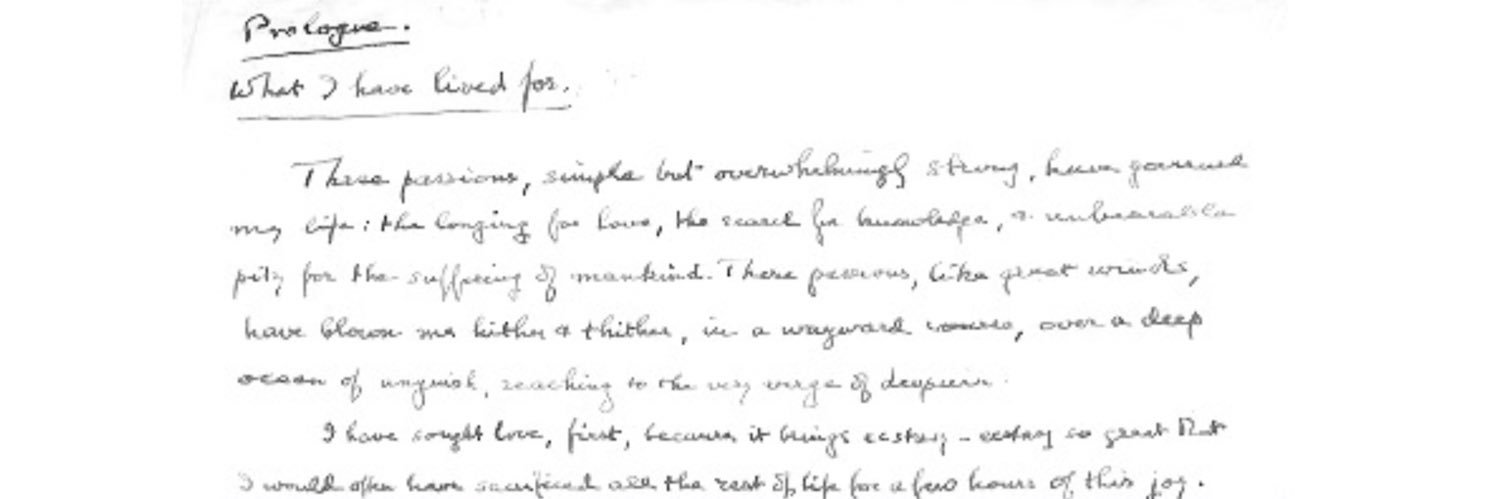 Prologue.
What I have lived for.
Three passions, simple but overwhelmingly strong, have governed
my life: the longing for love, the search for knowledge, & unbearable
pity for the suffering of mankind. These passions, like great winds,
have blown me hither & thither, in a wayward course, over a deep
ocean of anguish, reaching to the very verge of despair.
I have sought love, first, because it brings ecstasy - ecstasy so great that
I would often have sacrificed all the rest of life for a few hours of this joy.